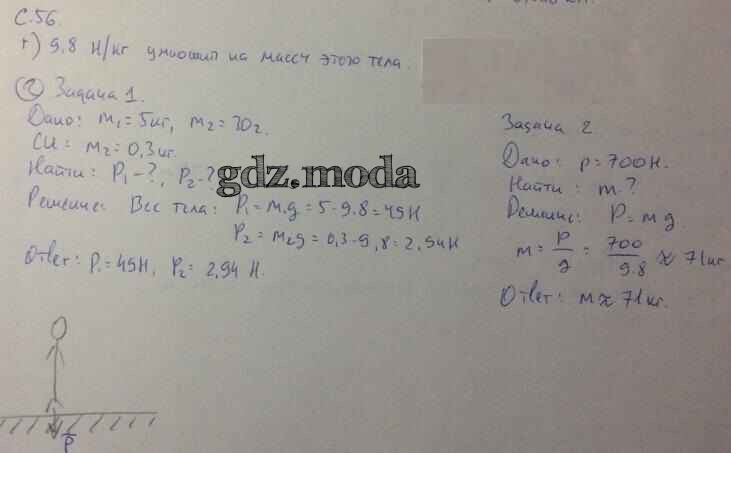 С. 56.
г) 9.8 Н/кг умножить на массу этого тела.
② Задача 1.
Дано: m₁ = 5 кг, m₂ = 30 г.
СИ: m₂ = 0,3 кг.
Найти: P₁ - ?, P₂ - ?
gdz.moda
Решение: Вес тела: P₁ = m₁g = 5 · 9.8 = 49 Н
P₂ = m₂g = 0,3 · 9,8 = 2,94 Н
Ответ: P₁ = 49 Н, P₂ = 2,94 Н.
P
Задача 2
Дано: p = 700 Н.
Найти: m - ?
Решение: P = m g.
m = P/g = 700/9.8 ≈ 71 кг
Ответ: m ≈ 71 кг.